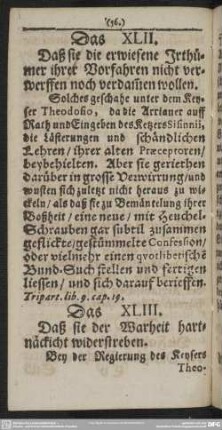 (56.)
Das XLII.
Daß sie die erwiesene Irthü-
mer ihrer Vorfahren nicht ver-
werffen noch verdam̃en wollen.
Solches geschahe unter dem Key-
ser Theodosio, da die Arrianer auff
Rath und Eingeben des Ketzers Sisinnii,
die Lästerungen und schändlichen
Lehren / ihrer alten Præceptoren /
beybehielten. Aber sie geriethen
darüber in grosse Verwirung / und
wusten sich zuletzt nicht heraus zu wi-
ckeln / als daß sie zu Bemäntelung ihrer
Boßheit / eine neue / mit Heuchel-
Schrauben gar subtil zusammen
geflickte / gestümmelte Confession /
oder vielmehr einen qvotliberische
Bund-Such stellen und fertigen
liessen / und sich darauf berieffen.
Tripart. lib. 9. cap. 19.
Das XLIII.
Daß sie der Warheit hart-
näckicht widerstreben.
Bey der Regierung des Keysers
Theo-